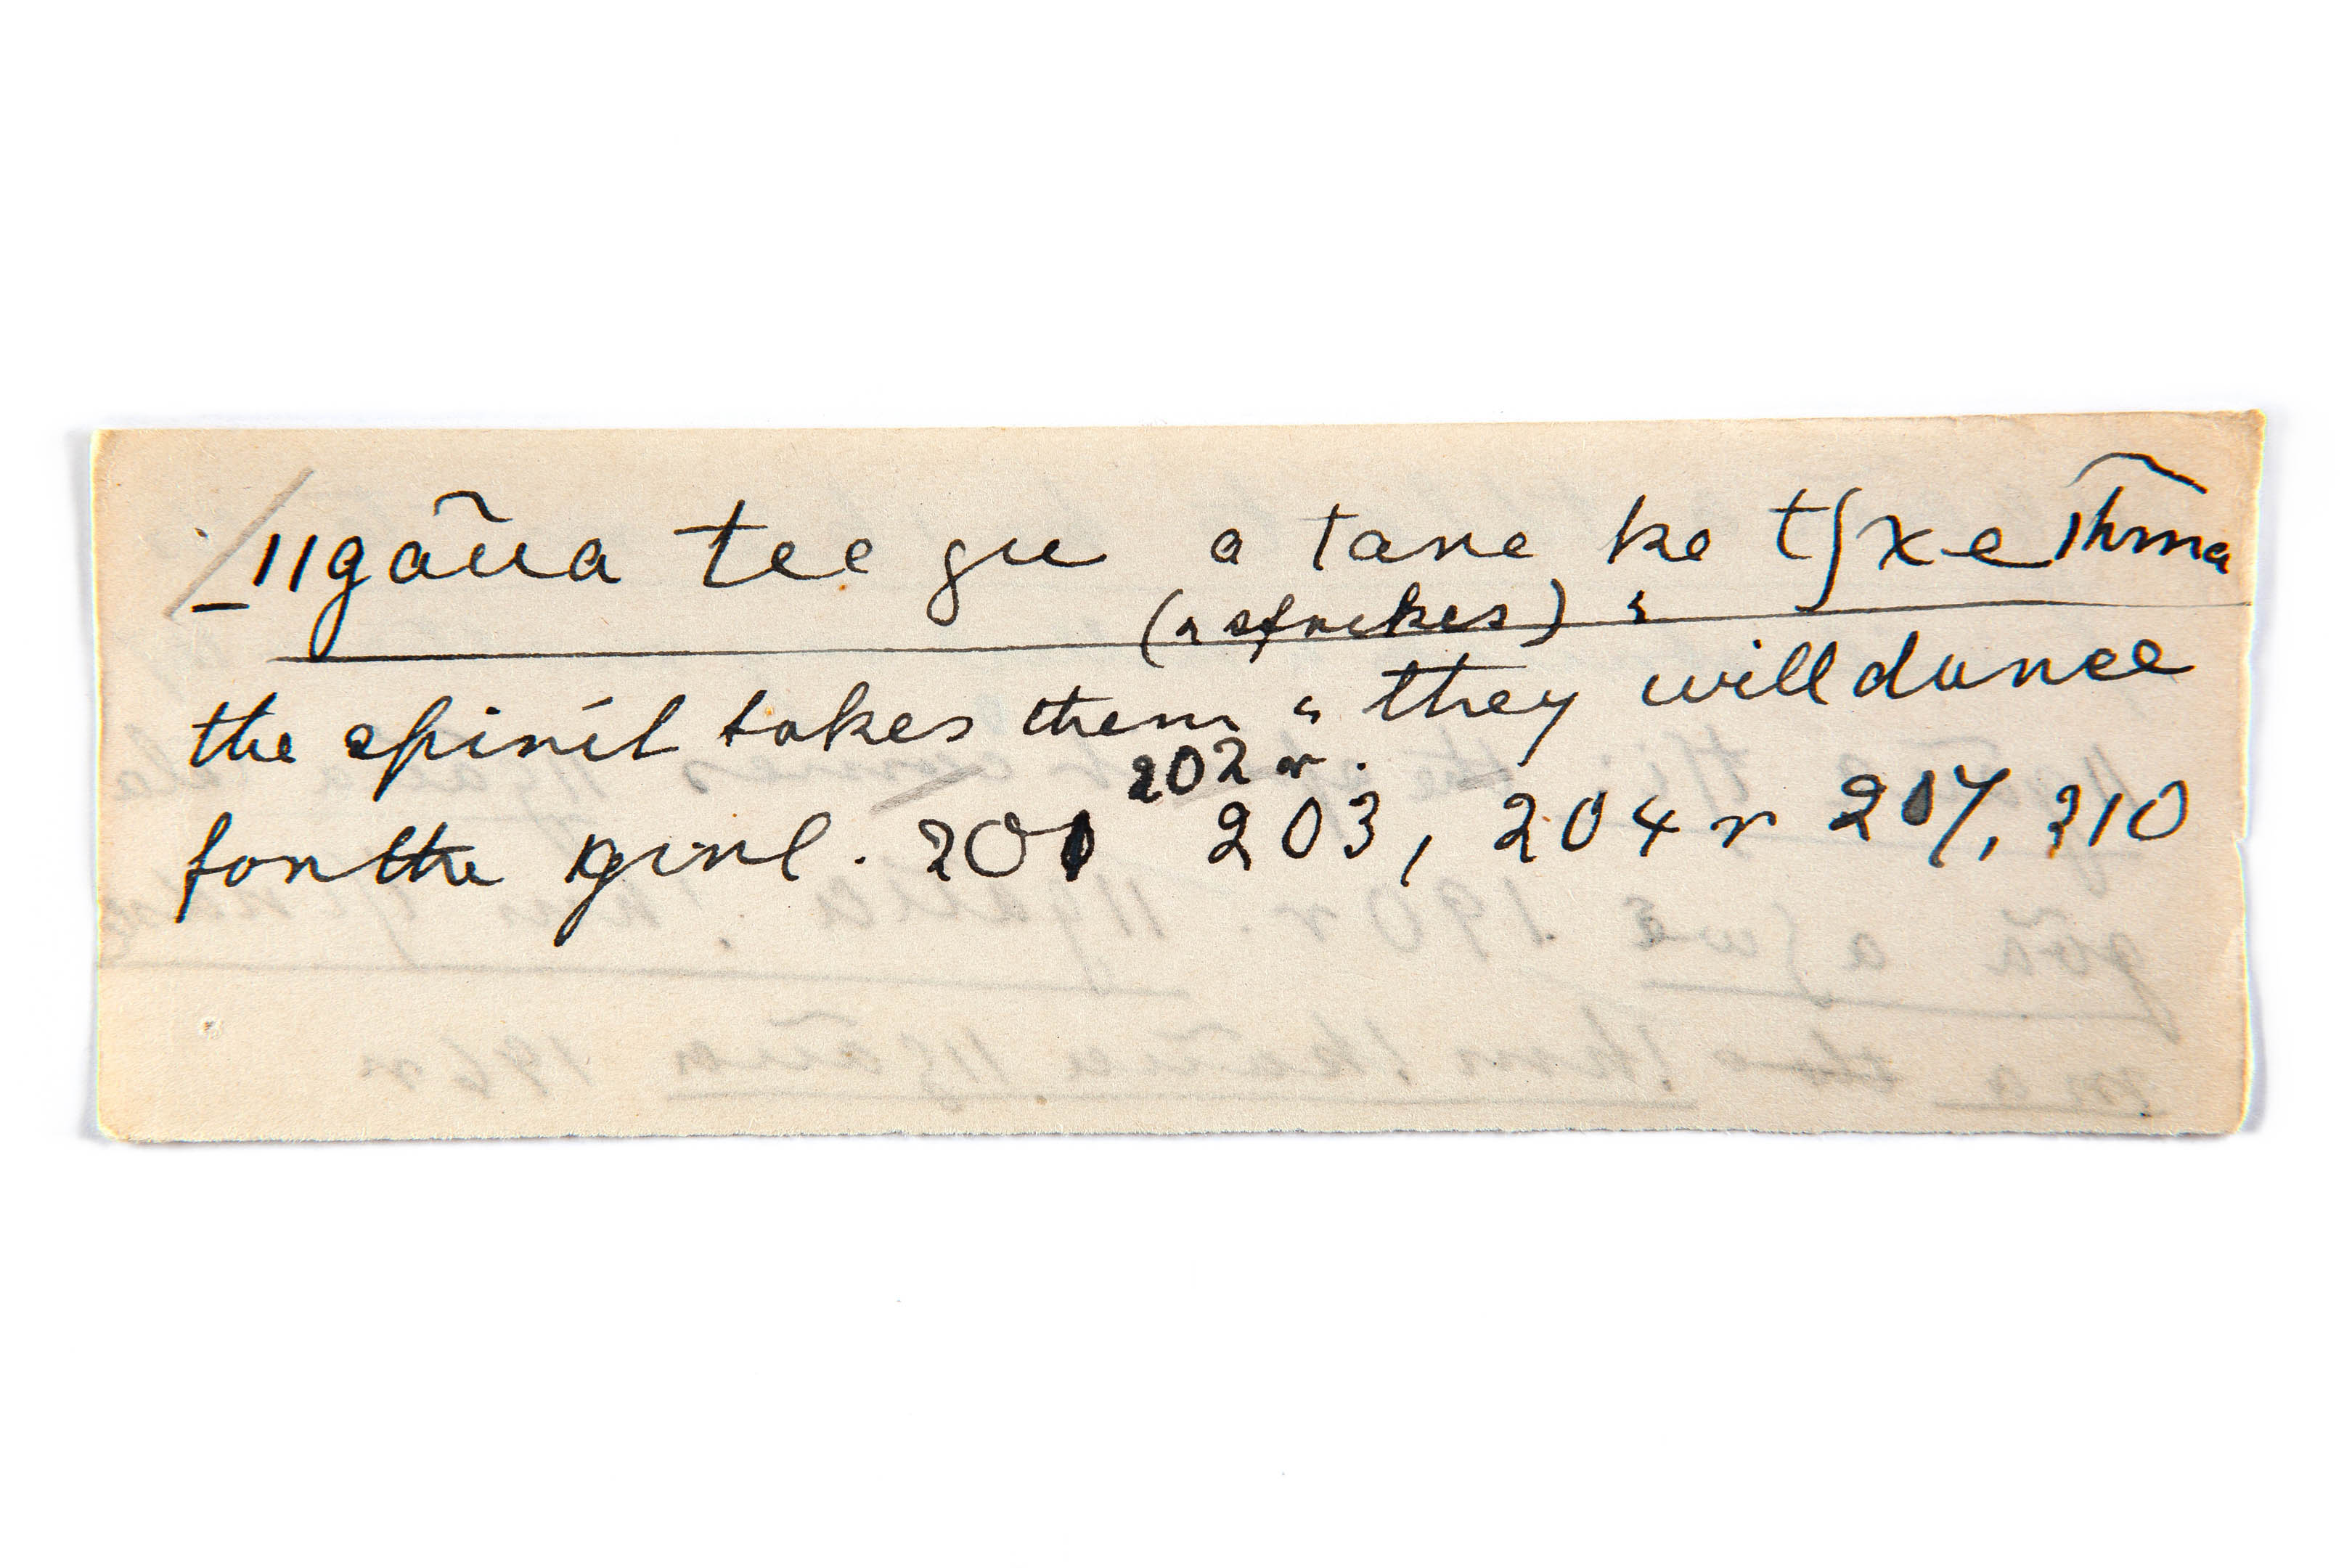 ǁgãũa tee gu a tane ke tʃxe ǀhma
(a strikes)
the spirit takes them & they will dance
202 r.
for the girl. 201 203, 204 r 207, 210